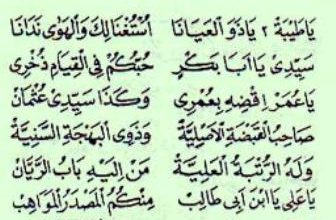 يَاطَيْبَةْ ٢ يَاذَوَالْعَيَانَا اُسْتُغْنَالِكْ وَالْهَوٰى نَدَانَا
سَيِّدِيْ يَا اَبَا بَكَرٍ حُبُّكُمْ فِى الْقِيَامِ ذُخْرِى
يَاعُمَرْ اِقْضِهِ بِعُمْرِى وَكَذَا سَيِّدِيْ عُثْمَانْ
صَاحِبُ الْقَبْضَةِ الْاَصِلِيَّةْ وَذَوِى الْبَهْجَةِ السَّنِيَّةْ
وَلَهُ الرُّتْبَةُ الْعَلِيَّةْ مَنْ اِلَيْهِ بَابُ الرَّيَّانْ
يَاعَلِى يَا ابْنَ اَبِى طَالِبْ مِنْكُمُ الْمَصْدَرُ الْمَوَاهِبْ